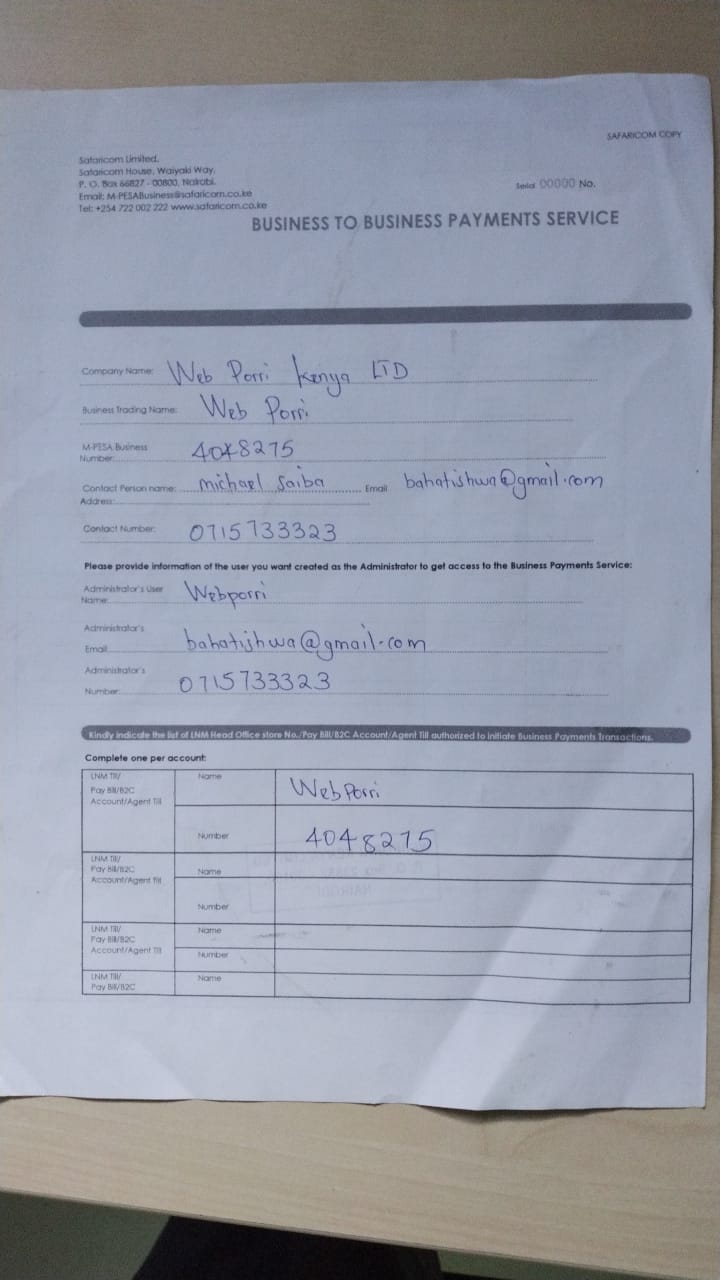 SAFARICOM COPY
Safaricom Limited.
Safaricom House, Waiyaki Way,
P. O. Box 66827 - 00800, Nairobi.
Email: M-PESABusiness@safaricom.co.ke
Tel: +254 722 002 222 www.safaricom.co.ke
00000 No.
BUSINESS TO BUSINESS PAYMENTS SERVICE
Company Name: Web Porri Kenya LTD
Business Trading Name: Web Porri
M-PESA Business
Number: 4048275
Contact Person name: michael Saiba Email bahatishwa@gmail.com
Address:
Contact Number: 0715733323
Please provide information of the user you want created as the Administrator to get access to the Business Payments Service:
Administrator's User
Name: Webporri
Administrator's
Email: bahatishwa@gmail.com
Administrator's
Number: 0715733323
Kindly indicate the list of LNM Head Office store No./Pay Bill/B2C Account/Agent Till authorized to initiate Business Payments Transactions.
Complete one per account:
LNM Till/ Name Web Porri
Pay Bill/B2C
Account/Agent Till
Number 4048275
LNM Till/
Pay Bill/B2C Name
Account/Agent Till
Number
LNM Till/ Name
Pay Bill/B2C
Account/Agent Till Number
LNM Till/ Name
Pay Bill/B2C